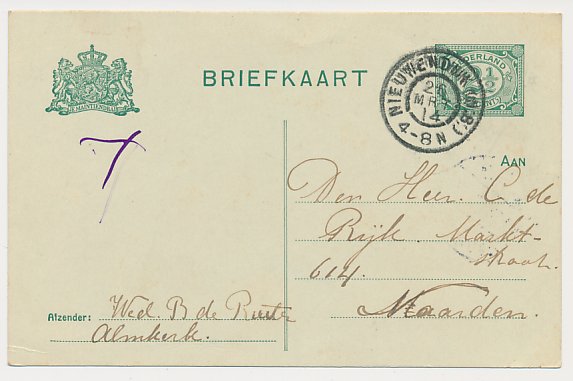 BRIEFKAART
NEDERLAND
2½
CENT
NIEUWENDIJK (N.B.)
24
MRT
14
4-8N
7
AAN
Den Heer C. de
Rijk Markt-
straat.
614.
Naarden.
Afzender: Wed. B de Ruiter
Almkerk.